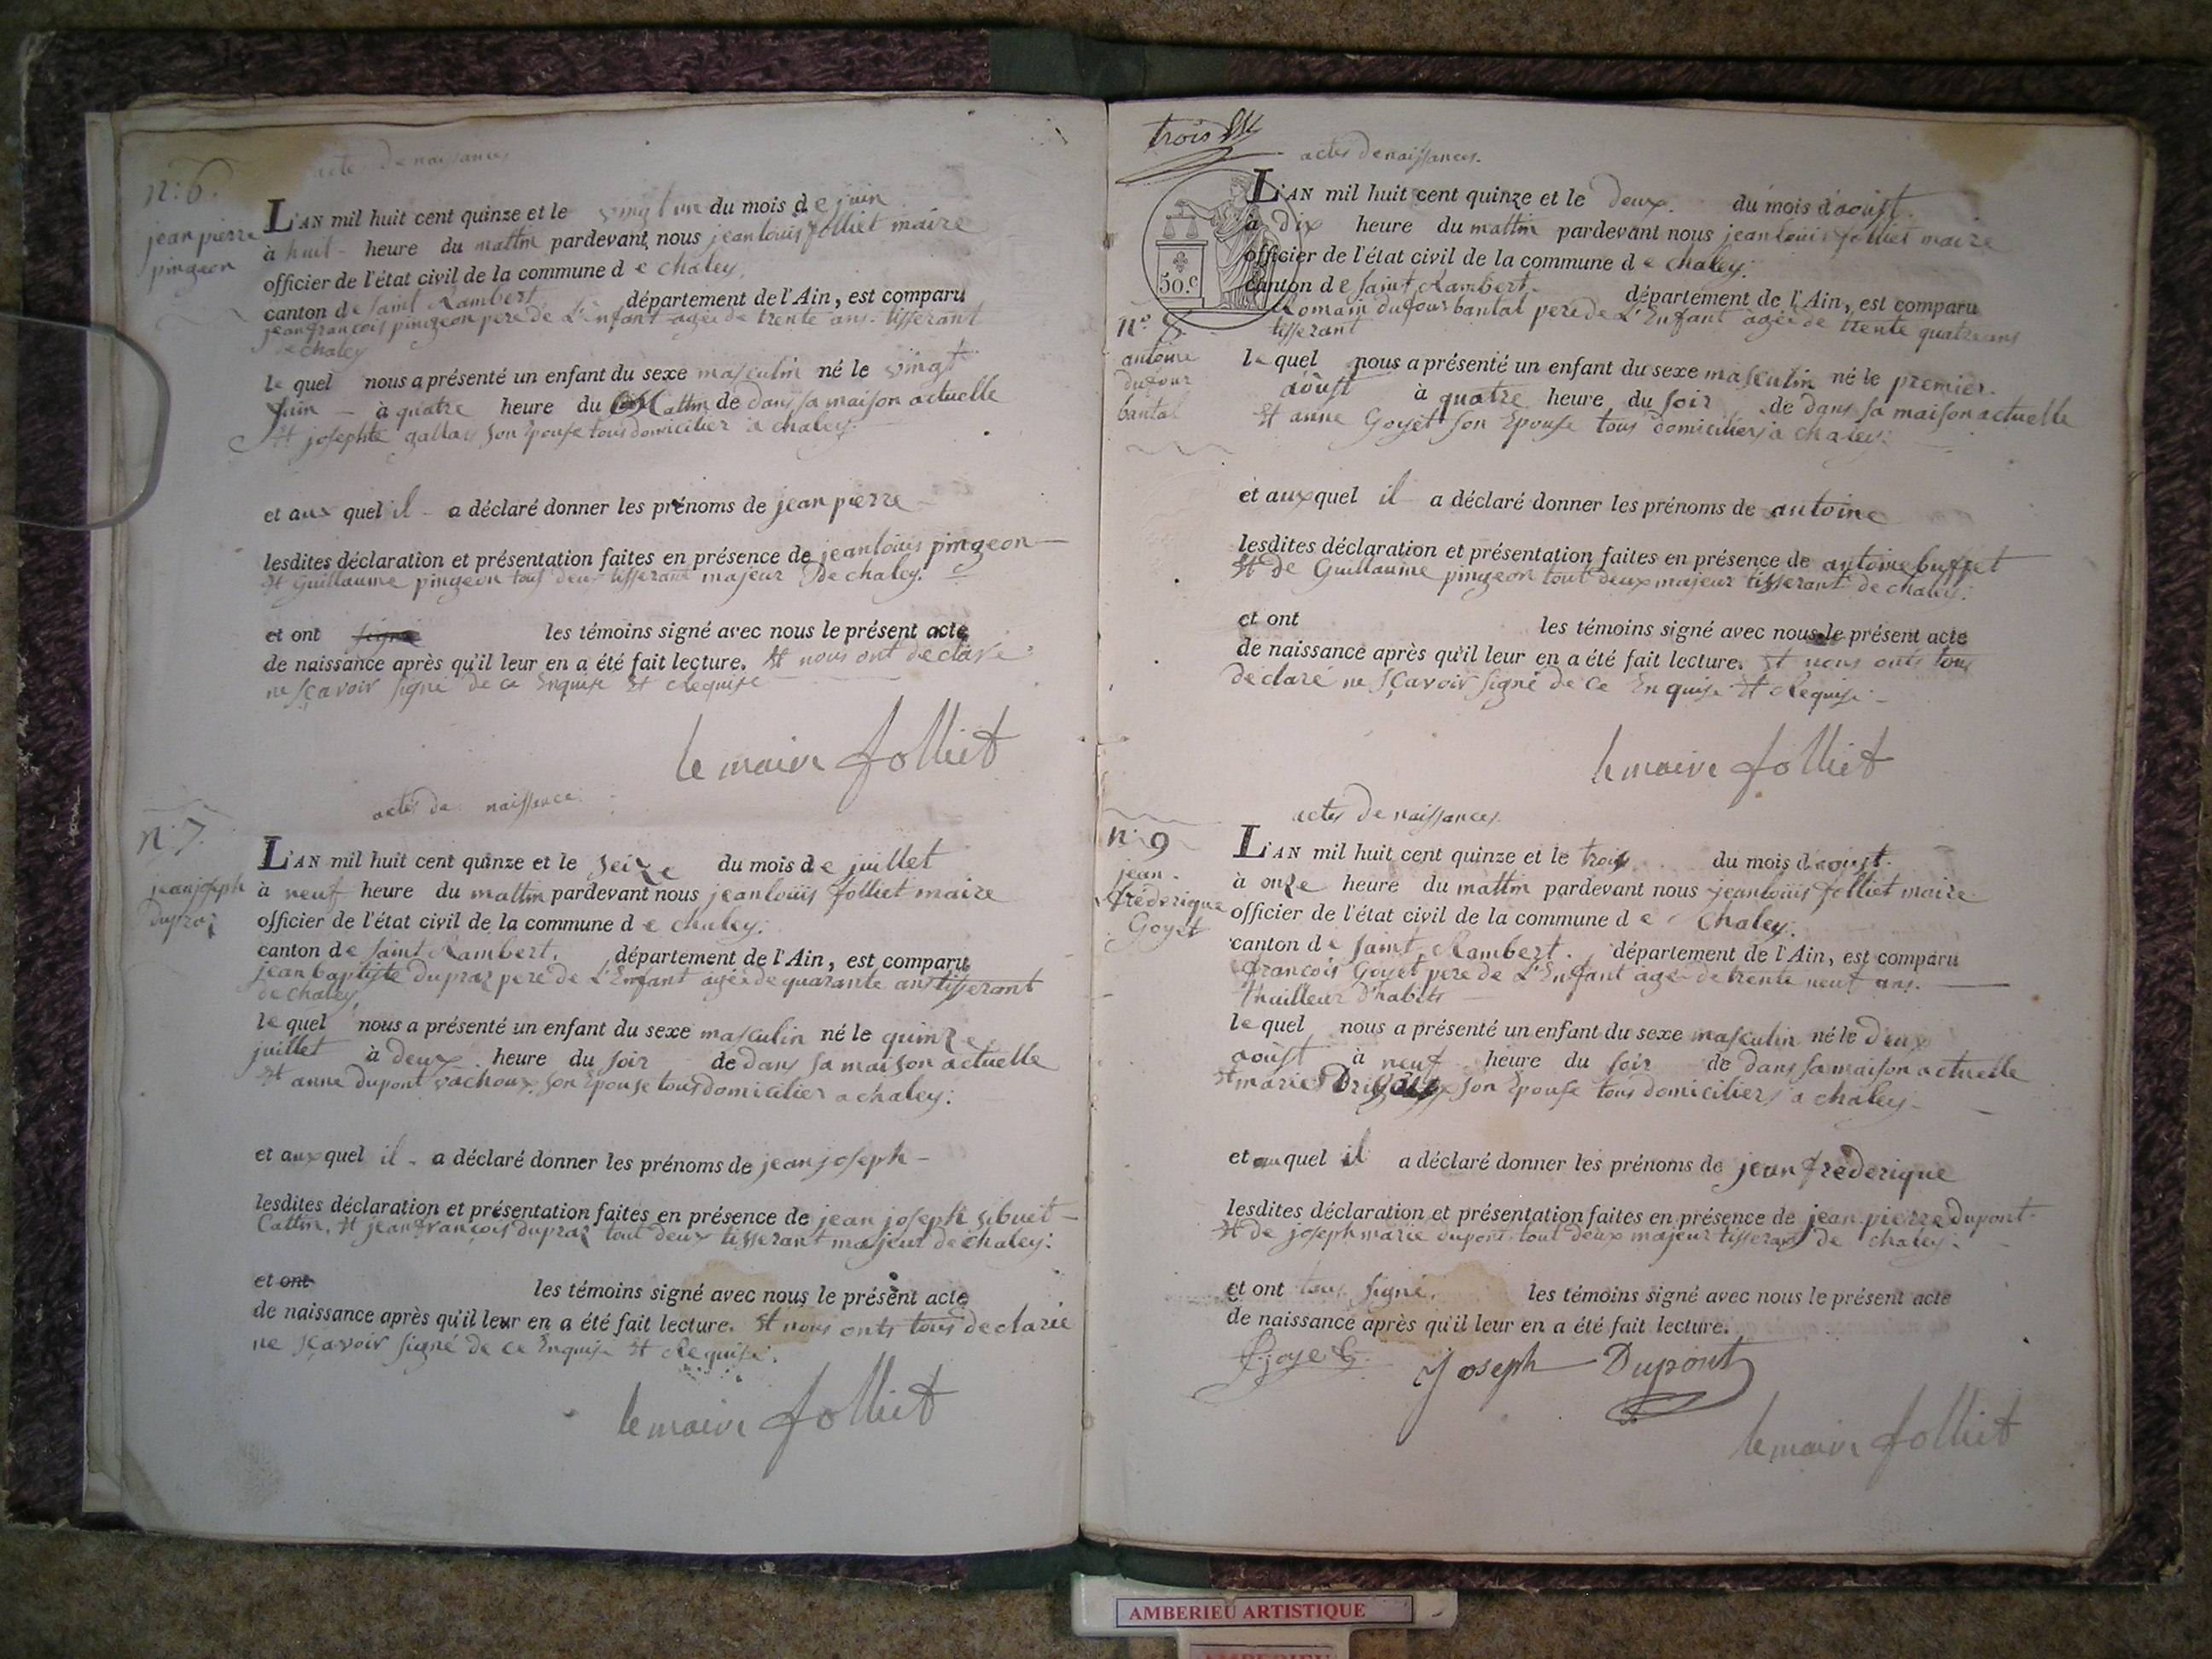 actes de naissances
n: 6.
jean pierre
pingeon
L'AN mil huit cent quinze et le vingt un du mois de juin
à huit - heure du mattin pardevant nous jean louis folliet maire
officier de l'état civil de la commune de chaley.
canton de saint Rambert département de l'Ain, est comparu
jean françois pingeon pere de L'Enfant agée de trente ans. tisserant
de chaley
lequel nous a présenté un enfant du sexe masculin né le vingt
juin - à quatre heure du Mattin de dans sa maison actuelle
Et josephte gallay son Epouse tous domicilier a chaley.
et aux quel il - a déclaré donner les prénoms de jean pierre
lesdites déclaration et présentation faites en présence de jean louis pingeon
Et Guillaume pingeon tous deux tisserant majeur de chaley.
et ont signé les témoins signé avec nous le présent acte
de naissance après qu'il leur en a été fait lecture. Et nous ont déclaré
ne sçavoir signé de ce Enquise Et Requise
le maire folliet
actes de naissance
n: 7.
jean joseph
dupraz
L'AN mil huit cent quinze et le seize du mois de juillet
à neuf heure du mattin pardevant nous jean louis folliet maire
officier de l'état civil de la commune de chaley.
canton de saint Rambert. département de l'Ain, est comparu
jean baptiste dupraz pere de L'Enfant agée de quarante ans tisserant
de chaley,
lequel nous a présenté un enfant du sexe masculin né le quinze
juillet à deux heure du soir de dans sa maison actuelle
Et anne dupont vachoux son Epouse tous domicilier a chaley:
et aux quel il - a déclaré donner les prénoms de jean joseph -
lesdites déclaration et présentation faites en présence de jean joseph sibuet -
Cattin, Et jean françois dupraz tout deux tisserant majeur de chaley:
et ont les témoins signé avec nous le présent acte
de naissance après qu'il leur en a été fait lecture. Et nous onts tous declarée
ne sçavoir signé de ce Enquise Et Requise.
le maire folliet
trois
actes de naissances.
50.c
n° 8.
antoine
dufour
bantal
L'AN mil huit cent quinze et le deux. du mois d'aoust.
à dix heure du mattin pardevant nous jean louis folliet maire
officier de l'état civil de la commune de chaley.
canton de saint Rambert. département de l'Ain, est comparu
Romain dufour bantal pere de L'Enfant agée de trente quatre ans
tisserant
lequel nous a présenté un enfant du sexe masculin né le premier.
aoust à quatre heure du soir de dans sa maison actuelle
Et anne Goyet son Epouse tous domiciliers a chaley:
et aux quel il a déclaré donner les prénoms de antoine
lesdites déclaration et présentation faites en présence de antoine buffet
Et de Guillaume pingeon tout deux majeur tisserant de chaley.
et ont les témoins signé avec nous le présent acte
de naissance après qu'il leur en a été fait lecture. Et nous onts tous
declaré ne sçavoir signé de ce Enquise Et Requise -
le maire folliet
actes de naissances.
n: 9
jean.
fréderique
Goyet
L'AN mil huit cent quinze et le trois du mois d'aoust.
à onze heure du mattin pardevant nous jean louis folliet maire
officier de l'état civil de la commune de Chaley.
canton de saint Rambert. département de l'Ain, est comparu
françois Goyet pere de L'Enfant agé de trente neuf ans.
thailleur d'habits
lequel nous a présenté un enfant du sexe masculin né le deux
aoust à neuf heure du soir de dans sa maison actuelle
Et marie son Epouse tous domiciliers a chaley -
et au quel il a déclaré donner les prénoms de jean fréderique
lesdites déclaration et présentation faites en présence de jean pierre dupont
Et de joseph marie dupont tout deux majeur tisserant de chaley.
et ont tous signé. les témoins signé avec nous le présent acte
de naissance après qu'il leur en a été fait lecture.
f. goyet
Joseph Dupont
le maire folliet
AMBERIEU ARTISTIQUE